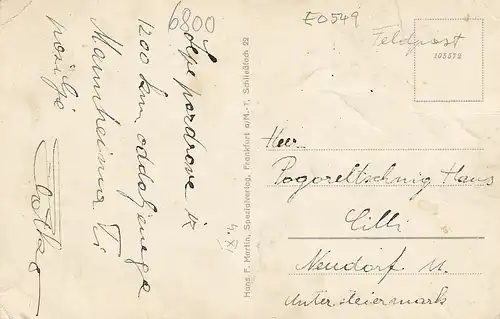 6800
E0549
Feldpost
105572
Lepe pozdrave iz
1200 km oddaljenega
Mannheima Ti
pošilja
4. XI.
Hans F. Martin, Spezialverlag, Frankfurt a/M.-1, Schließfach 22
Herr
Pogoreltschnig Hans
Cilli
Neudorf 11.
Untersteiermark